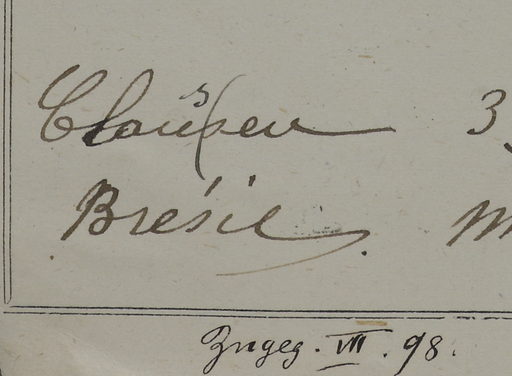 Clausen 3
Brésil. M
Zugeg. VIII. 98.